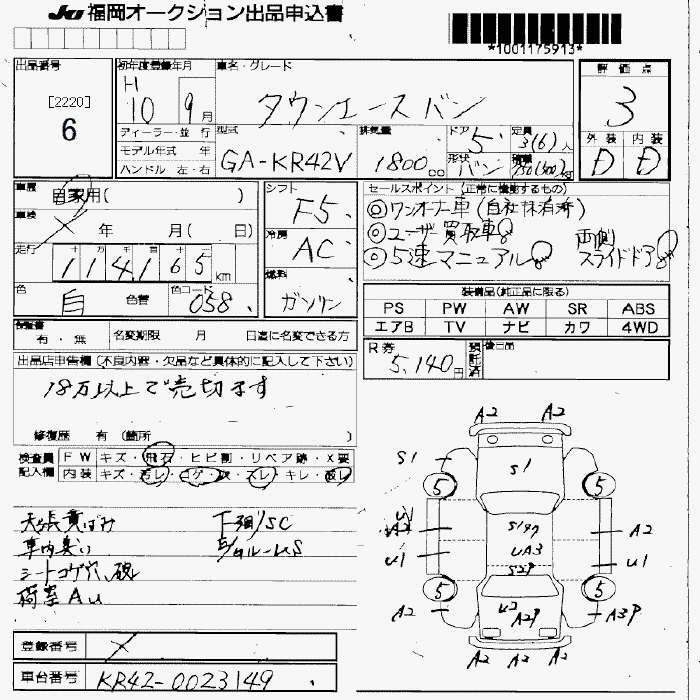 JU 福岡オークション出品申込書
*1001175913*
出品番号
[2220]
6
初年度登録年月
H
10 9月
車名・グレード
タウンエースバン
評価点
3
外装 内装
D D
ディーラー・並行
モデル年式 年
ハンドル 左・右
型式
GA-KR42V
排気量
1800cc
ドア
5
定員
3(6)人
形状
バン
積載
kg
車歴
自家用( )
車検
× 年 月( 日)
走行
十 万 千 百 十
114165km
色
白
色替
色コード
058
シフト
F5
冷房
AC
燃料
ガソリン
セールスポイント(正常に機能するもの)
◎ワンオーナー車(自社抹消済)
◎ユーザー買取車
◎5速マニュアル
両側
スライドドア
装備品(純正品に限る)
PS PW AW SR ABS
エアB TV ナビ カワ 4WD
有・無
名変期限 月 日迄に名変できる方
R券
5,140円
預託済
後日品
出品店申告欄(不良内容・欠品など具体的に記入して下さい)
18万以上で売切ます
修復歴 有(箇所 )
検査員
記入欄
FW キズ・飛石・ヒビ割・リペア跡・X要
内装 キズ・汚レ・コゲ・穴・スレ・キレ・破レ
天張黄ばみ
車内臭い
シートコゲ穴、破レ
荷室AU
F羽/SC
A2 A2
S1 S1 5 5
A2 S1 A2
U1 UA3 U1
5 5
A2 U2 A2P A3P
A2 A2 A2
登録番号
×
車台番号
KR42-0023149